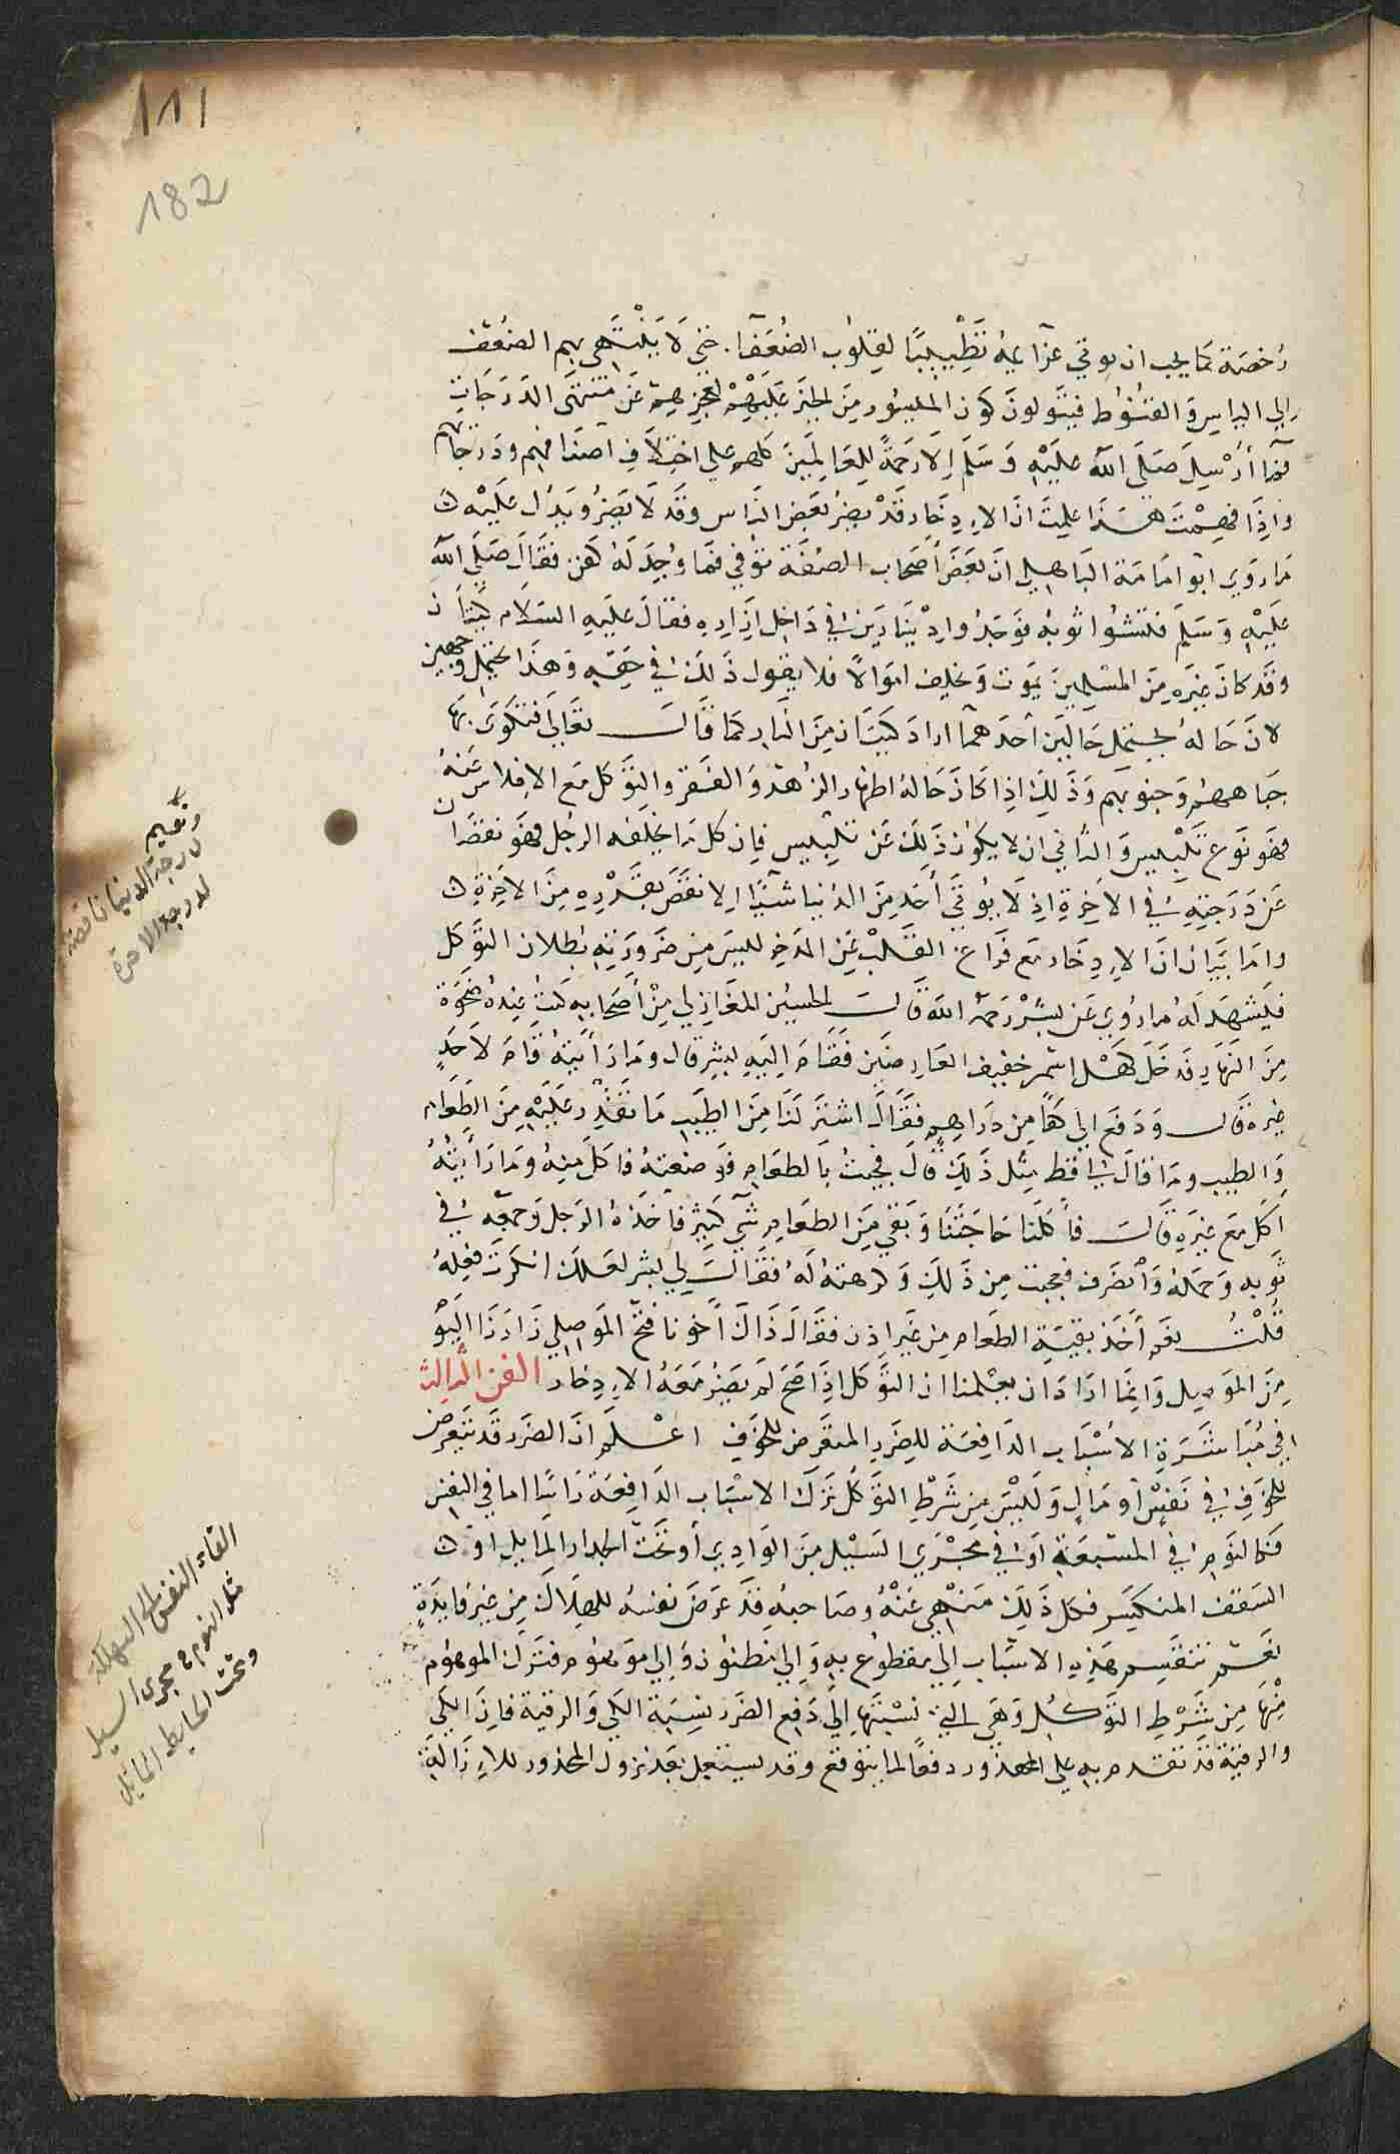 111
182
رُخصَة كما يحب ان يوتى عزآئمه تَطْييبًا لقلوب الضُعَفآ. حتي لَا يَنْتَهي بهم الضعف
الي الياس والقنُوط فيتركون الميسُور مِنَ الخيْر عَليهِمْ لعجزهم عَن منتهَى الدَرَجات
فما أُرْسِلَ صَلى الله عليْهِ وَسَلم اِلا رَحمةً لِلعَالمين كلهم على اختِلاَف اصنافهم ودرجاتهم
واذَا فهِمْتَ هَذا علِمتَ انَ الادِخَار قَدْ يضِرُ بعَض الناس وقَد لا يَضِرُ ويَدُل عَليْه
مَا رَوي ابو امَامَة البَاهِلي انَ بعَض أَصحَاب الصُفَة تُوُفي فمَا وُجِدَ لَهُ كفن فقَالَ صَلَى الله
عَليْهِ وَسَلم فتشُوا ثوبه فوَجدُوا دِيْنَارَين في دَاخِل اِزَارِهِ فقال عَليهِ السَلام كيتان
وقَد كانَ غيَره مِنَ المسْلِمِينَ يمَوت وَيخلِف امْوَالاً فلا يقول ذَلك في حَقِه وَهَذا يحتمِل وجهين
لانَ حَالهُ يحتمِل حَاليَن أَحَدَهمآ ارادَ كيتَان مِنَ النَار كمَا قَالَ تعَالَى فتكوَى بها
جبَاههُم وَجنوبهم وَذَلِكَ اِذا كَانَ حَالهُ اظهَار الزُهد وَالفَقر والتَوَكل مَع الافلاس عَنهُ
فهَو نَوع تَلْبيس وَالثَاني ان لا يكون ذَلِكَ عَن تلبيس فان كل مَا يخلفه الرجُل فهَو نقصَان
عَن دَرَجَتِهِ في الاَخِرةِ اِذ لَا يُوتَى أَحَد مِنَ الدُنيا شَيئًا اِلا نقَصَ بقَدْرِهِ مِنَ الاَخِرةِ
وامَا بيَان انَ الاِدِخَار مَع فَرَاغ القَلْب عَنِ المدَخر ليسَ مِن ضَرورَتِهِ بُطلان التَوَكل
فيَشهَد لَهُ مَا رُوي عَن بِشْر رَحمَهُ الله قَالَ الحسَين المغَازلي مِنْ أَصحَابِهِ كُنتُ عِندهُ ضحَوَة
مِنَ النَهارِ فدَخَلَ كهل اسمر خفيف العَارِضَين فقَامَ اِليهِ بشر قال ومَا رَأَيتهُ قَامَ لاحَدٍ
غيره قال وَدَفع الي كفًا مِن دَرَاهِم فقَال اشتَر لنَا مِنَ اطيَبِ مَا تقَدِر عَليهِ مِنَ الطعَام
وَالطيب ومَا قالَ لي قط مِثل ذَلِكَ قالَ فجئتُ بالطعَامِ فوضعتهُ فاكَل مَعهُ ومَا رَأَيتُهُ
اكل مَع غيرهِ قَالَ فاكلنا حَاجَتنَا وَبَقي مِنَ الطعَامِ شَيء كثير فأخَذهُ الرَجل وَجمعَه في
ثَوبه وَحمَلهُ وَانصَرف فعجبت مِن ذَلِكَ وَكرهتهُ لَهُ فقَالَ لي بشر لعَلك انكرت فِعلَهُ
قُلْتُ نعَم أَخَذ بقيَة الطعَام مِن غير اذن فقَالَ ذَاكَ أَخونا فتح المَوصِلي زَارَنا اليَوْم
مِنَ المَوصِل وَانِما ارَادَ ان يعَلمنا ان التوَكل اِذَا صَح لَم يضِرْ مَعَهُ الاِدِخار الفن الثالث
في مُبَاشَرةِ الاسْبَاب الدَافِعَة للضَررِ المعَرَض للخَوف اعْلم انَ الضَرر قَد يتعرض
للخَوف في نَفسٍ او مَالٍ وَليْسَ مِن شَرْطِ التوَكل ترَك الاسْبَاب الدَافِعَة رَاسًا اما في النفس
فَكالنَوم في المسْبعَةِ أو في مجْرَي السَيْل مِنَ الوَادِي أو تَحت الجدار المايل او
السَقف المنكسِر فكل ذَلِكَ مَنْهي عَنْهُ وصَاحبهُ قد عَرَضَ نفسَهُ للهلاَك مِن غَير فايدَةٍ
نعَم تنقسِم هَذِهِ الاسْبَاب اِلى مقطُوع بهِ وَاِلى مظنُون وَاِلى مَوهُوم فتَرك الموهُوم
مِنْهَا مِن شَرْطِ التوَكُل وَهي التي نسْبتهَا اِلى دَفع الضَرر نِسبَة الكَي وَالرقية فان الكَي
والرقيَة قَد تقَدم به علي المحذُور دفعًا لما يتوقع وقد يستعمل بعَد نزول المحذور للاِزَالة
وتقييم
درجة الدنيا ناقصة
لدرجة الاخرة
القاء النفس الى التهلكة
مثل النوم في مجرى السيل
وتحت الحايط المائل